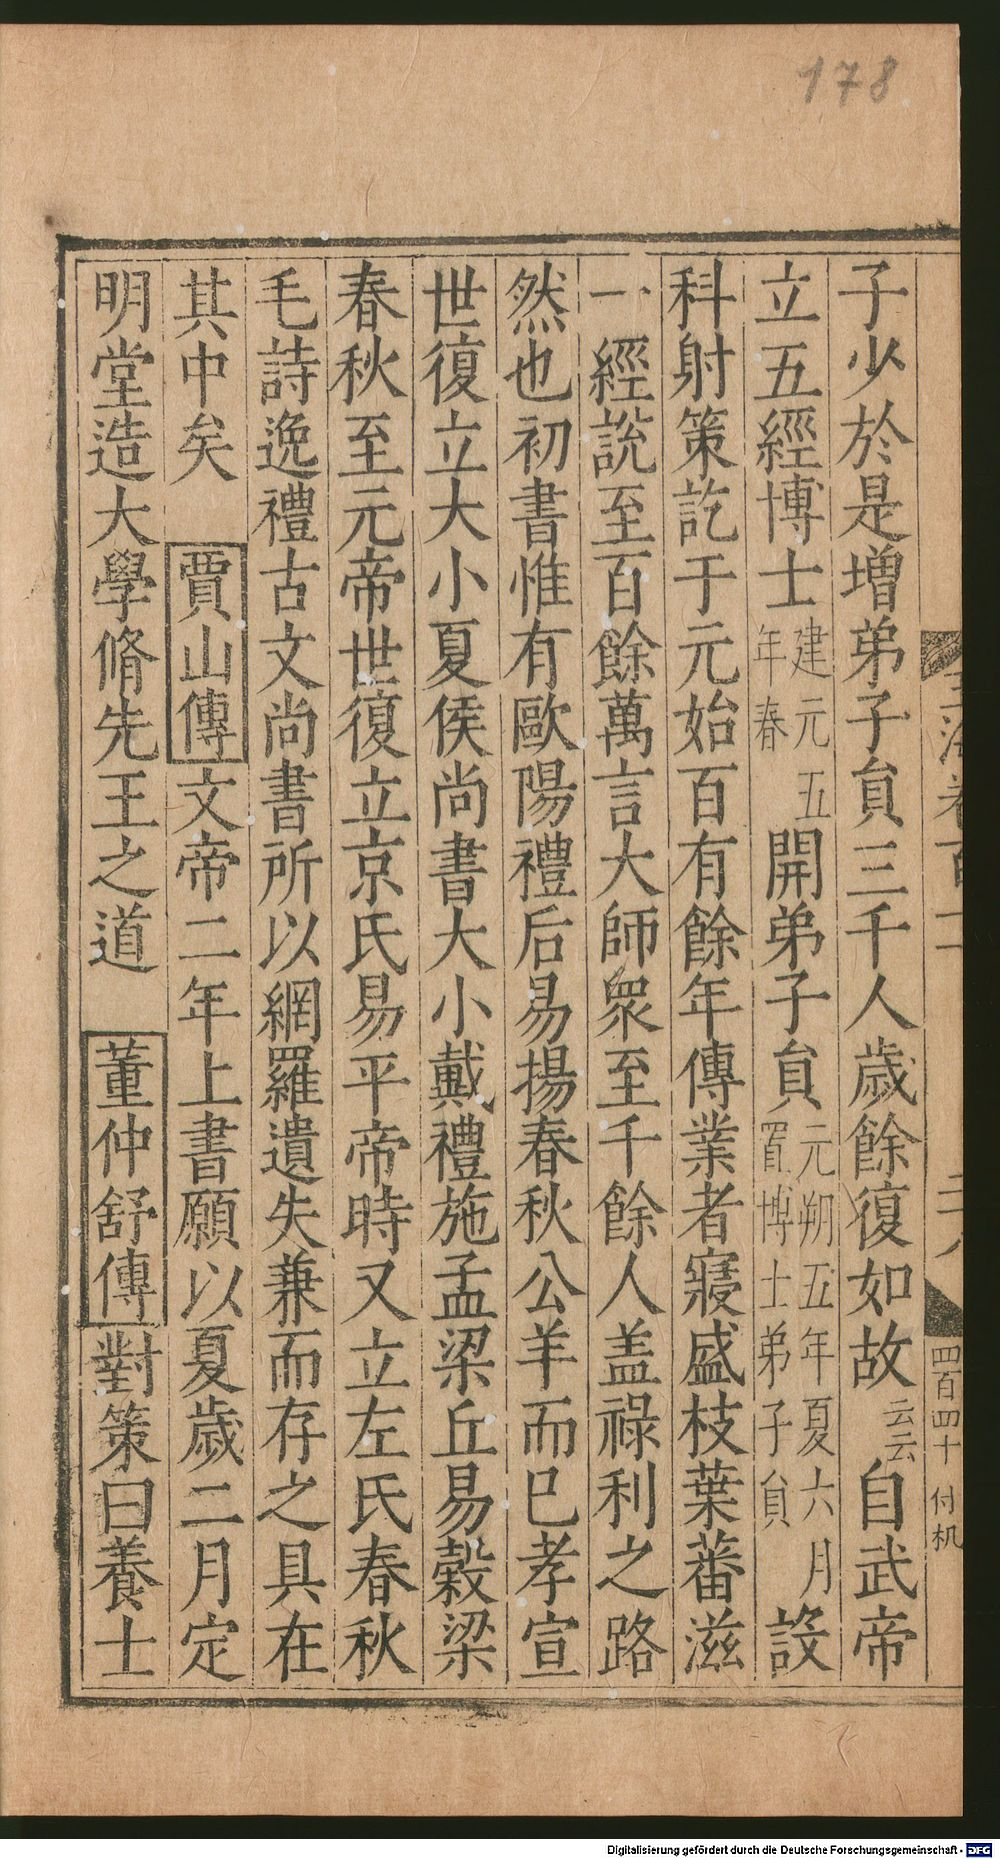 178
子少於是增弟子貟三千人歲餘復如故云云自武帝
立五經博士建元五年春開弟子貟元朔五年夏六月置博士弟子貟設
科射策訖于元始百有餘年傳業者寖盛枝葉蕃滋
一經說至百餘萬言大師衆至千餘人盖祿利之路
然也初書惟有歐陽禮后易揚春秋公羊而已孝宣
世復立大小夏侯尚書大小戴禮施孟梁丘易穀梁
春秋至元帝世復立京氏易平帝時又立左氏春秋
毛詩逸禮古文尚書所以網羅遺失兼而存之具在
其中矣 賈山傳文帝二年上書願以夏歲二月定
明堂造大學脩先王之道 董仲舒傳對策曰養士
四百四十 付机
Digitalisierung gefördert durch die Deutsche Forschungsgemeinschaft - DFG